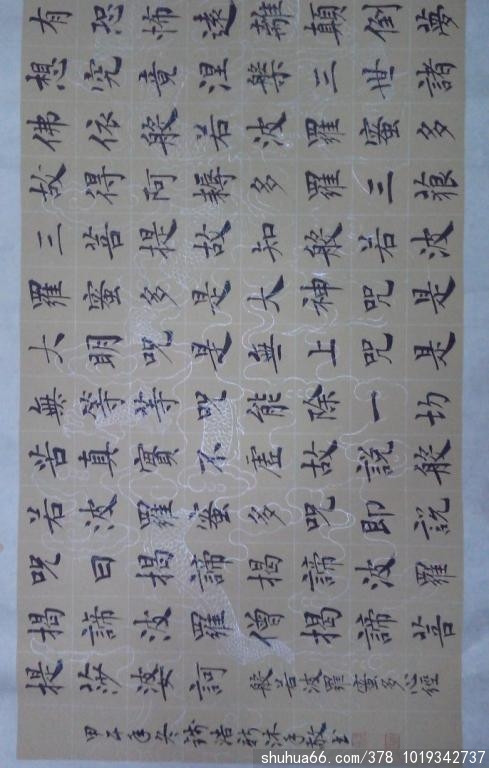 有恐怖遠離顛倒夢
想究竟涅槃三世諸
佛依般若波羅蜜多
故得阿耨多羅三藐
三菩提故知般若波
羅蜜多是大神咒是
大明咒是無上咒是
無等等咒能除一切
苦真實不虛故說般
若波羅蜜多咒即說
咒曰揭諦揭諦波羅
揭諦波羅僧揭諦菩
提婆訶 般若波羅蜜多心經
甲午年冬沐手敬
shuhua66.com/378 1019342737